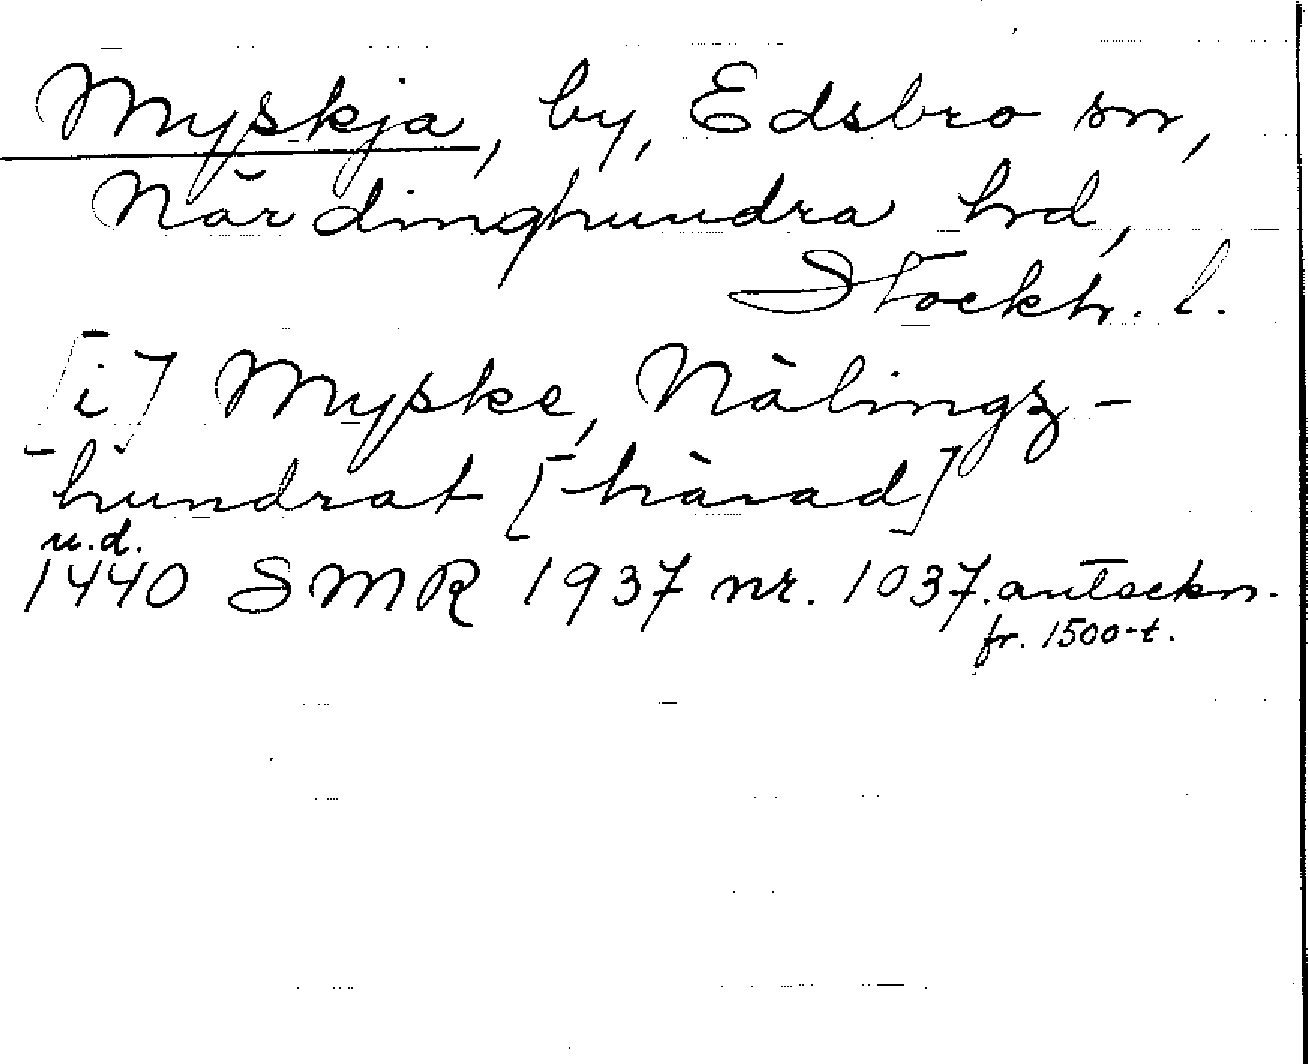 Myskja, by, Edsbro sn,
Närdinghundra hrd,
Stockh. l.
[i] Myske, Nälingz-
hundrat [härad]
u.d.
1440 SMR 1937 nr. 1037. anteckn.
fr. 1500-t.